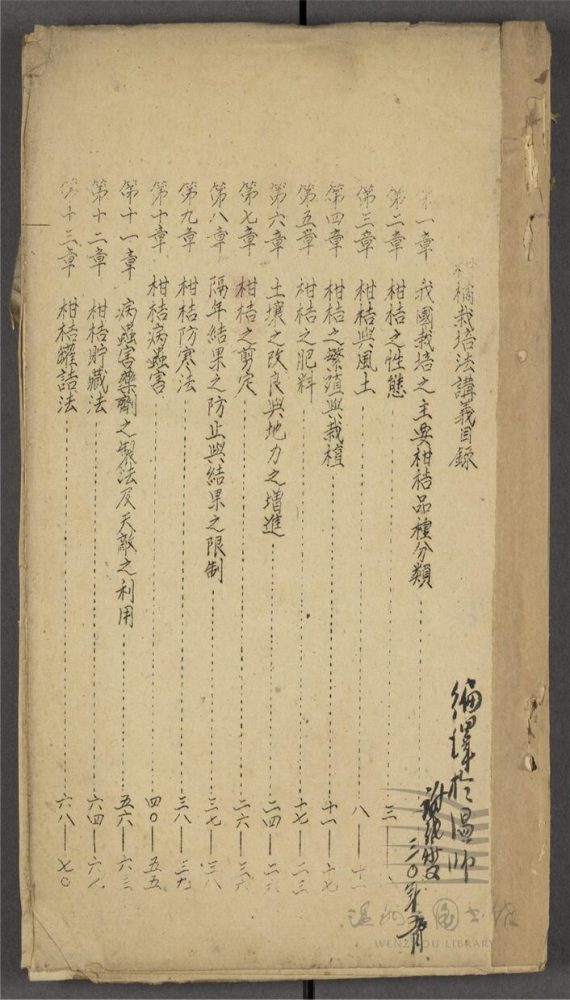 柑橘栽培法講義目錄
第一章 我國栽培之主要柑桔品種分類
第二章 柑桔之性態 三
第三章 柑桔與風土 八——十一
第四章 柑桔之繁殖與栽植 十一——十七
第五章 柑桔之肥料 十七——二三
第六章 土壤之改良與地力之增進 二四——二六
第七章 柑桔之剪定 二六——三六
第八章 隔年結果之防止與結果之限制 三七——三八
第九章 柑桔防寒法 三八——三九
第十章 柑桔病蟲害 四〇——五五
第十一章 病蟲害藥劑之製法及天敵之利用 五六——六三
第十二章 柑桔貯藏法 六四——六七
第十三章 柑桔罐詰法 六八——七〇
編擇於溫師
三〇年
溫州圖書館
WENZHOU LIBRARY